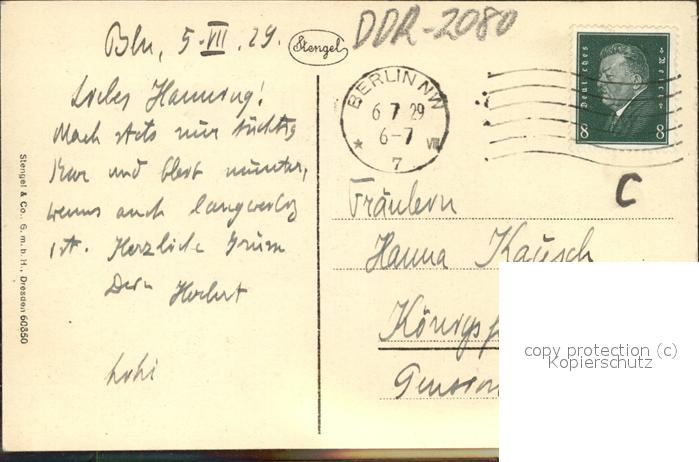 Bln, 5. VII. 29.
Stengel
DDR-2080
Liebes Hanning!
Mach stets nur tüchtig
Kur und bleib munter,
wenns auch langweilig
ist. Herzliche Grüsse
Dein Herbert
BERLIN NW
6 7 29
6-7 VIII
* 7
Deutsches Reich
8 8
C
Fräulein
Hanna Kausch
Königsf
Stengel & Co., G. m. b. H., Dresden 60350
copy protection (c)
Kopierschutz